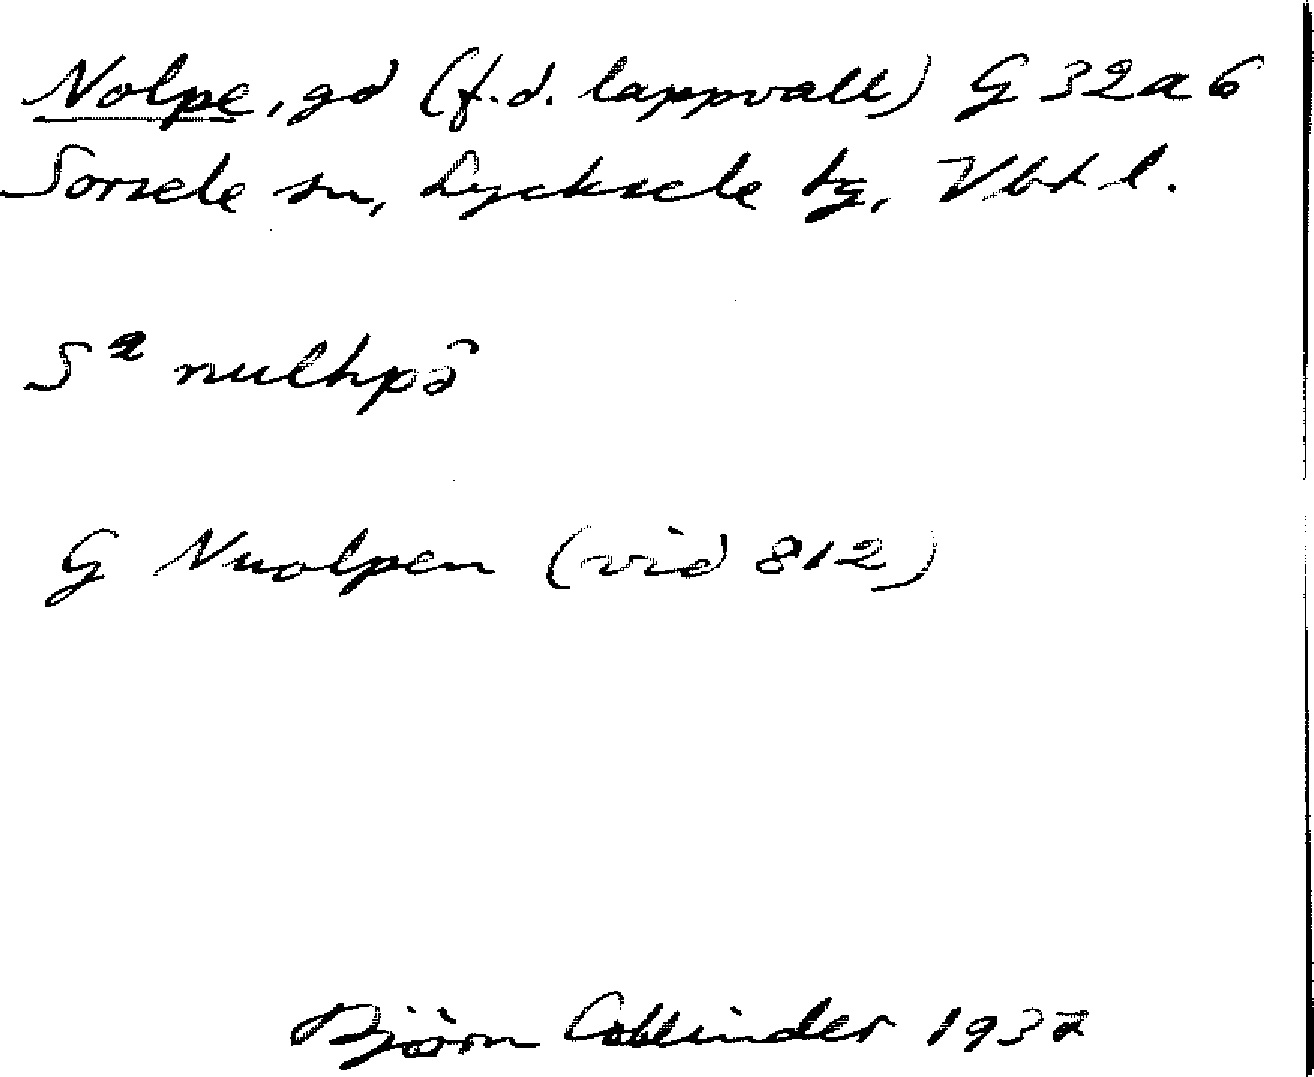 Nolpe, gd (f.d. lappvall) G 32a6
Sorsele sn, Lycksele tg, Vbt l.
S² nulhpə̑
G Nuolpen (vid 812)
Björn Collinder 1937